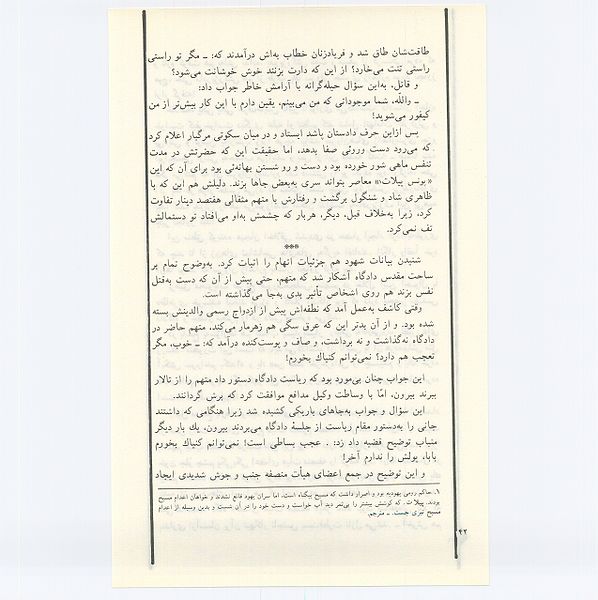 طاقت‌شان طاق شد و فریادزنان خطاب به‌اش درآمدند که: ـ مگر تو راستی
راستی تنت می‌خارد؟ از این که دارت بزنند خوش خوشانت می‌شود؟
و قاتل، به‌این سؤال حیله‌گرانه با آرامش خاطر جواب داد:
ـ واللّه، شما موجوداتی که من می‌بینم، یقین دارم با این کار بیش‌تر از من
کیفور می‌شوید!
پس ازاین حرف دادستان پاشد ایستاد و در میان سکوتی مرگبار اعلام کرد
که می‌رود دست وروئی صفا بدهد، اما حقیقت این که حضرتش در مدت
تنفس ماهی شور خورده بود و دست و رو شستن بهانه‌ئی بود برای آن که این
«پونس پیلات»۱ معاصر بتواند سری به‌بعض جاها بزند. دلیلش هم این که با
ظاهری شاد و شنگول برگشت و رفتارش با متهم مثقالی هفتصد دینار تفاوت
کرد، زیرا به‌خلاف قبل، دیگر، هربار که چشمش به‌او می‌افتاد تو دستمالش
تف نمی‌کرد.
***
شنیدن بیانات شهود هم جزئیات اتهام را اثبات کرد. به‌وضوح تمام بر
ساحت مقدس دادگاه آشکار شد که متهم، حتی پیش از آن که دست به‌قتل
نفس بزند هم روی اشخاص تأثیر بدی به‌جا می‌گذاشته است.
وقتی کاشف به‌عمل آمد که نطفه‌اش پیش از ازدواج رسمی والدینش بسته
شده بود. و از آن بدتر این که عرق سگی هم زهرمار می‌کند، متهم حاضر در
دادگاه نه‌گذاشت و نه برداشت، و صاف و پوست‌کنده درآمد که: ـ خوب، مگر
تعجب هم دارد؟ نمی‌توانم کنیاك بخورم!
این جواب چنان بی‌مورد بود که ریاست دادگاه دستور داد متهم را از تالار
ببرند بیرون، امّا با وساطت وکیل مدافع موافقت کرد که برش گردانند.
این سؤال و جواب به‌جاهای باریکی کشیده شد زیرا هنگامی که داشتند
جانی را به‌دستور مقام ریاست از جلسهٔ دادگاه می‌بردند بیرون، یك بار دیگر
منباب توضیح قضیه داد زد: ـ عجب بساطی است! نمی‌توانم کنیاك بخورم
بابا، پولش را ندارم آخر!
و این توضیح در جمع اعضای هیأت منصفه جنب و جوش شدیدی ایجاد
۱. حاکم رومی یهودیه بود و اصرار داشت که مسیح بیگناه است. اما سران یهود قانع نشدند و خواهان اعدام مسیح
بودند. پیلات، که کوشش بیشتر را بی‌ثمر دید آب خواست و دست خود را در آن شست و بدین وسیله از اعدام
مسیح تبری جست. ـ مترجم.
۴۲